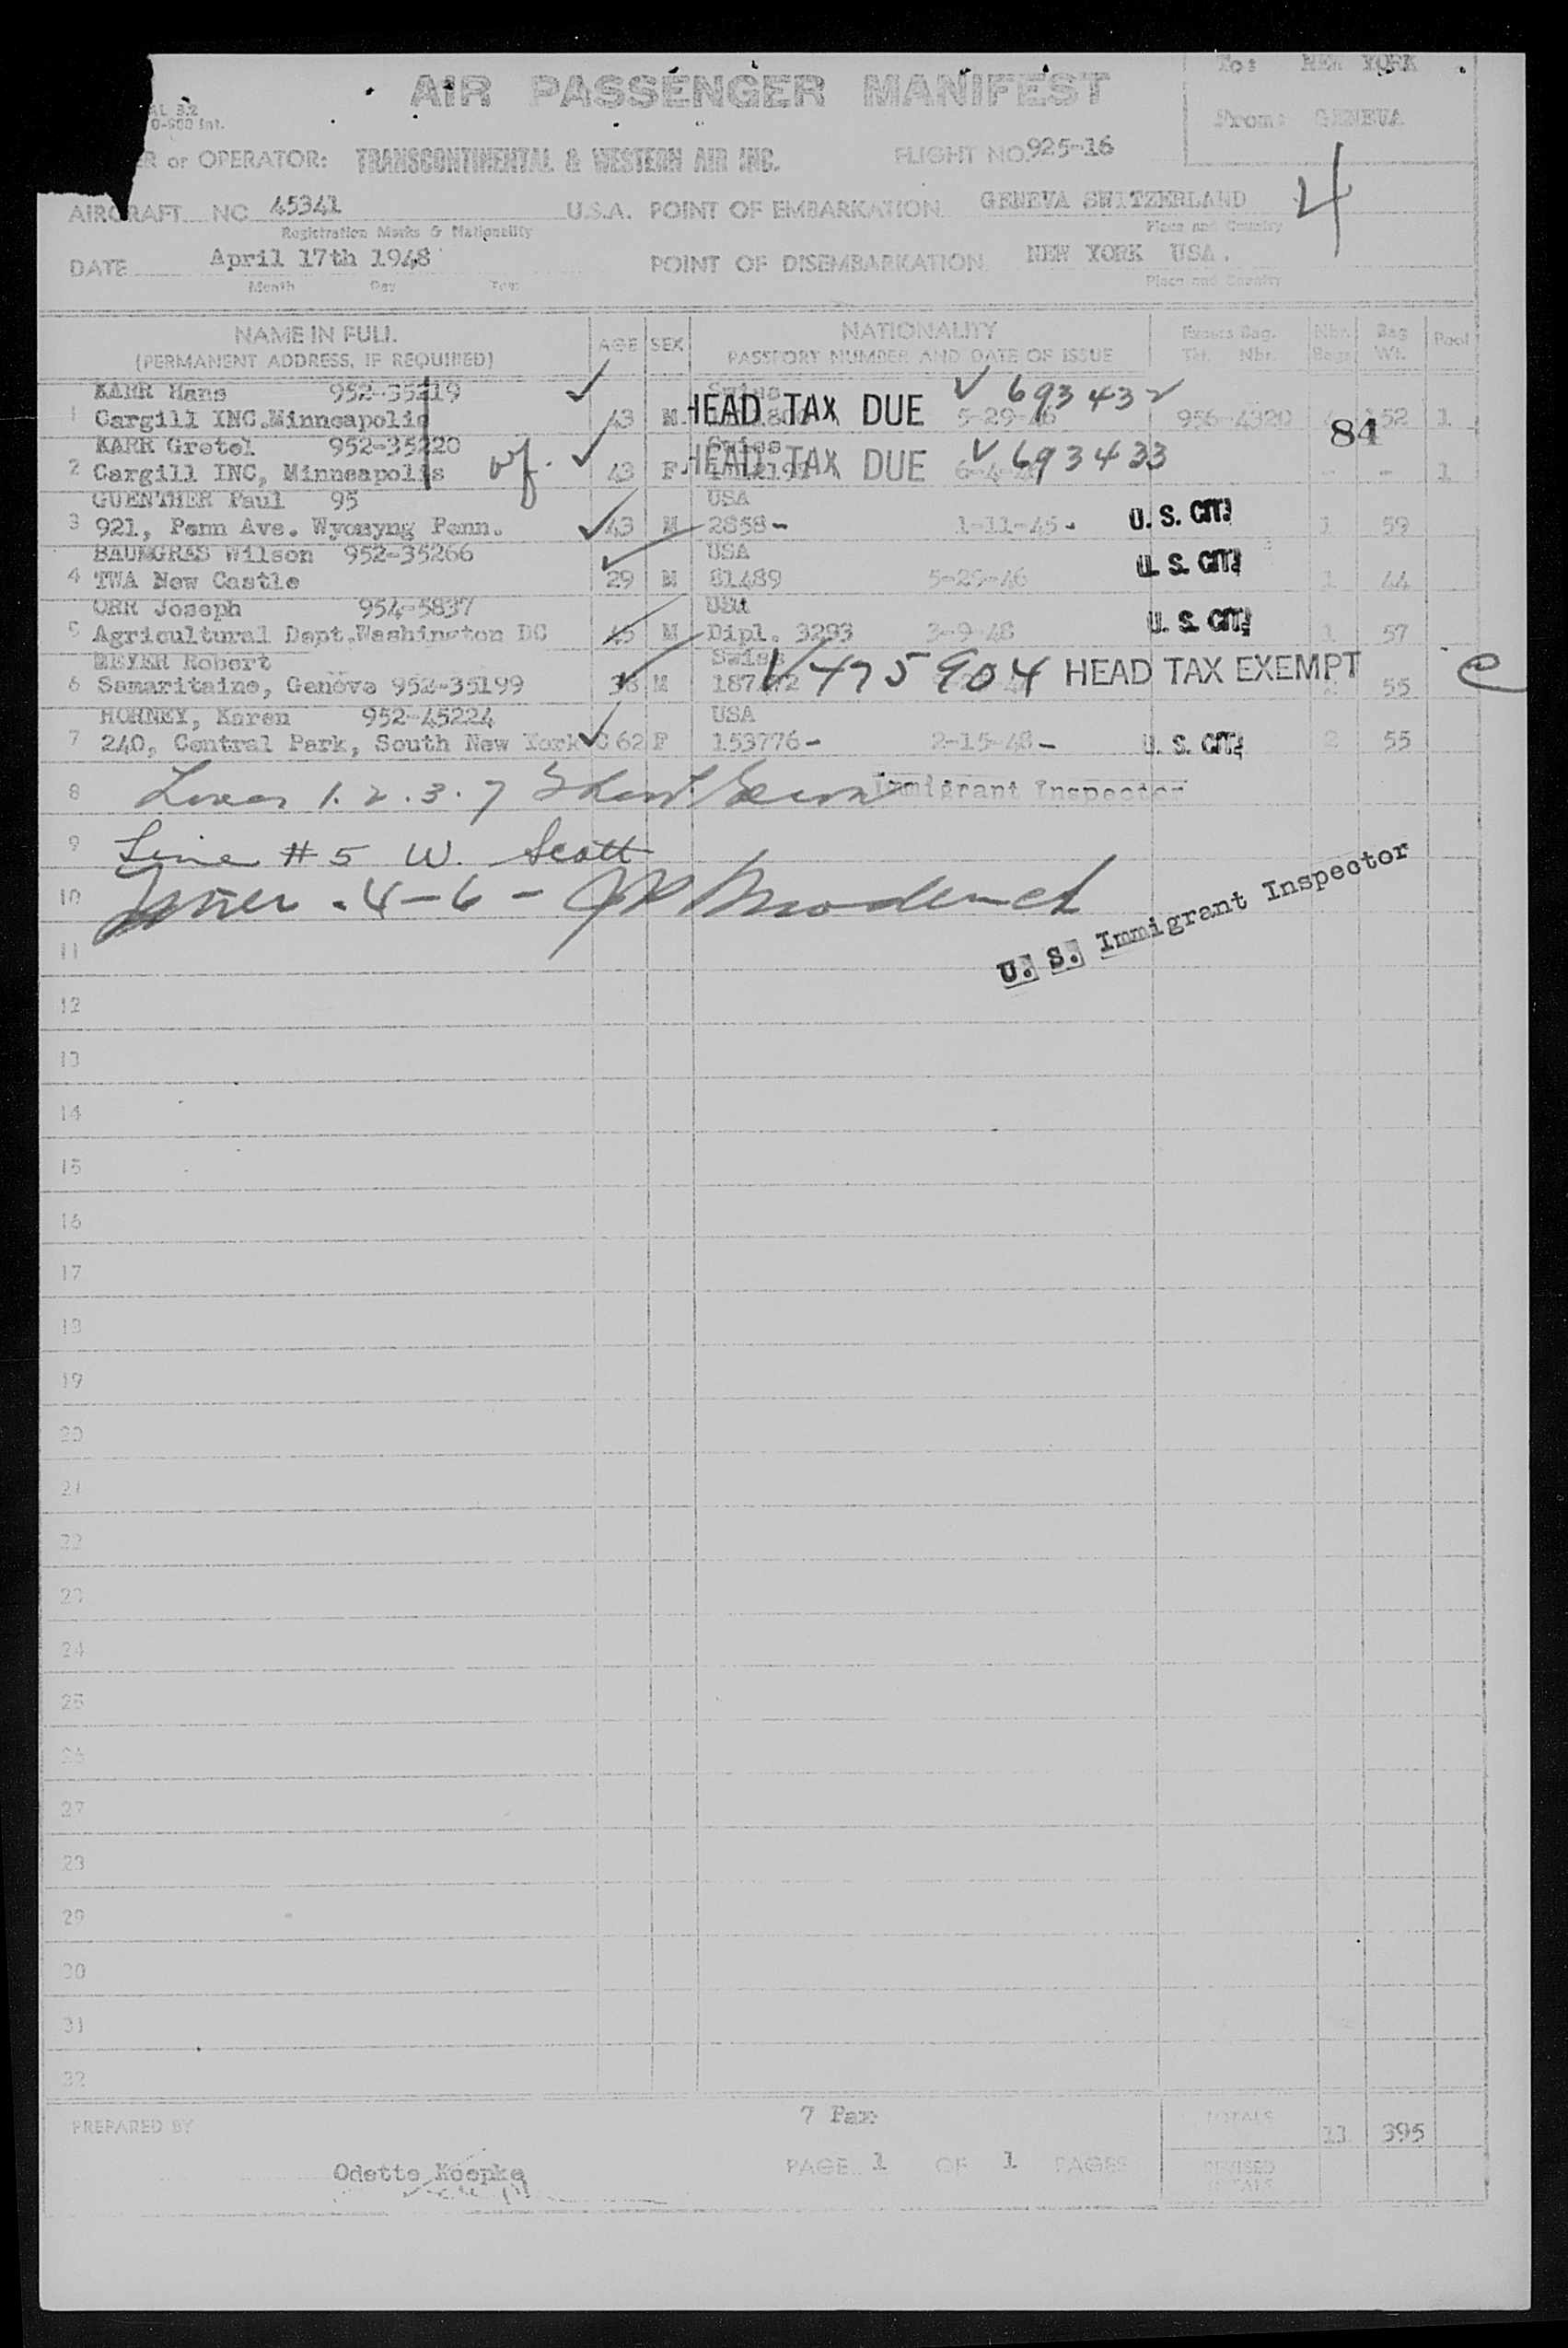 To: NEW YORK
AIR PASSENGER MANIFEST
From: GENEVA
OPERATOR: TRANSCONTINENTAL & WESTERN AIR INC. FLIGHT NO. 925-16
4
AIRCRAFT NO 45341 U.S.A. POINT OF EMBARKATION GENEVA SWITZERLAND
Registration Marks & Nationality Place and Country
DATE April 17th 1948 POINT OF DISEMBARKATION NEW YORK USA.
Month Day Year Place and Country
NAME IN FULL AGE SEX NATIONALITY Excess Bag. Nbr. Bag Pool
(PERMANENT ADDRESS, IF REQUIRED) PASSPORT NUMBER AND DATE OF ISSUE Tkt. Nbr. Bags Wt.
KARR Hans 952-35219 Swiss V 693432
1 Cargill INC.Minneapolis 43 M HEAD TAX DUE 5-29-46 956-4320 152 1
84
KARR Gretel 952-35220 Swiss V 693433
2 Cargill INC, Minneapolis wf. 43 F HEAD TAX DUE - - 1
GUENTHER Paul 95 USA
3 921, Penn Ave. Wyomyng Penn. 43 M 2858- 1-11-45- U. S. CIT. 1 59
BAUMGRAS Wilson 952-35266 USA
4 TWA New Castle 29 M 81489 5-25-46 U. S. CIT. 1 44
ORR Joseph 954-5837 USA
5 Agricultural Dept.Washington DC 45 M Dipl. 3293 3-9-48 U. S. CIT. 1 57
MEYER Robert Swiss
6 Samaritaine, Genève 952-35199 38 M V 475904 HEAD TAX EXEMPT 55 e
HORNEY, Karen 952-45224 USA
7 240, Central Park, South New York 62 F 153776- 2-15-48- U. S. CIT. 2 55
8 Lines 1. 2. 3. 7 Immigrant Inspector
9 Line #5 W. Scott
10 Lines - 4-6 -
U. S. Immigrant Inspector
11
12
13
14
15
16
17
18
19
20
21
22
23
24
25
26
27
28
29
30
31
32
7 Pax
PREPARED BY TOTALS 11 395
Odette Koepke PAGE 1 OF 1 PAGES REVISED TOTALS